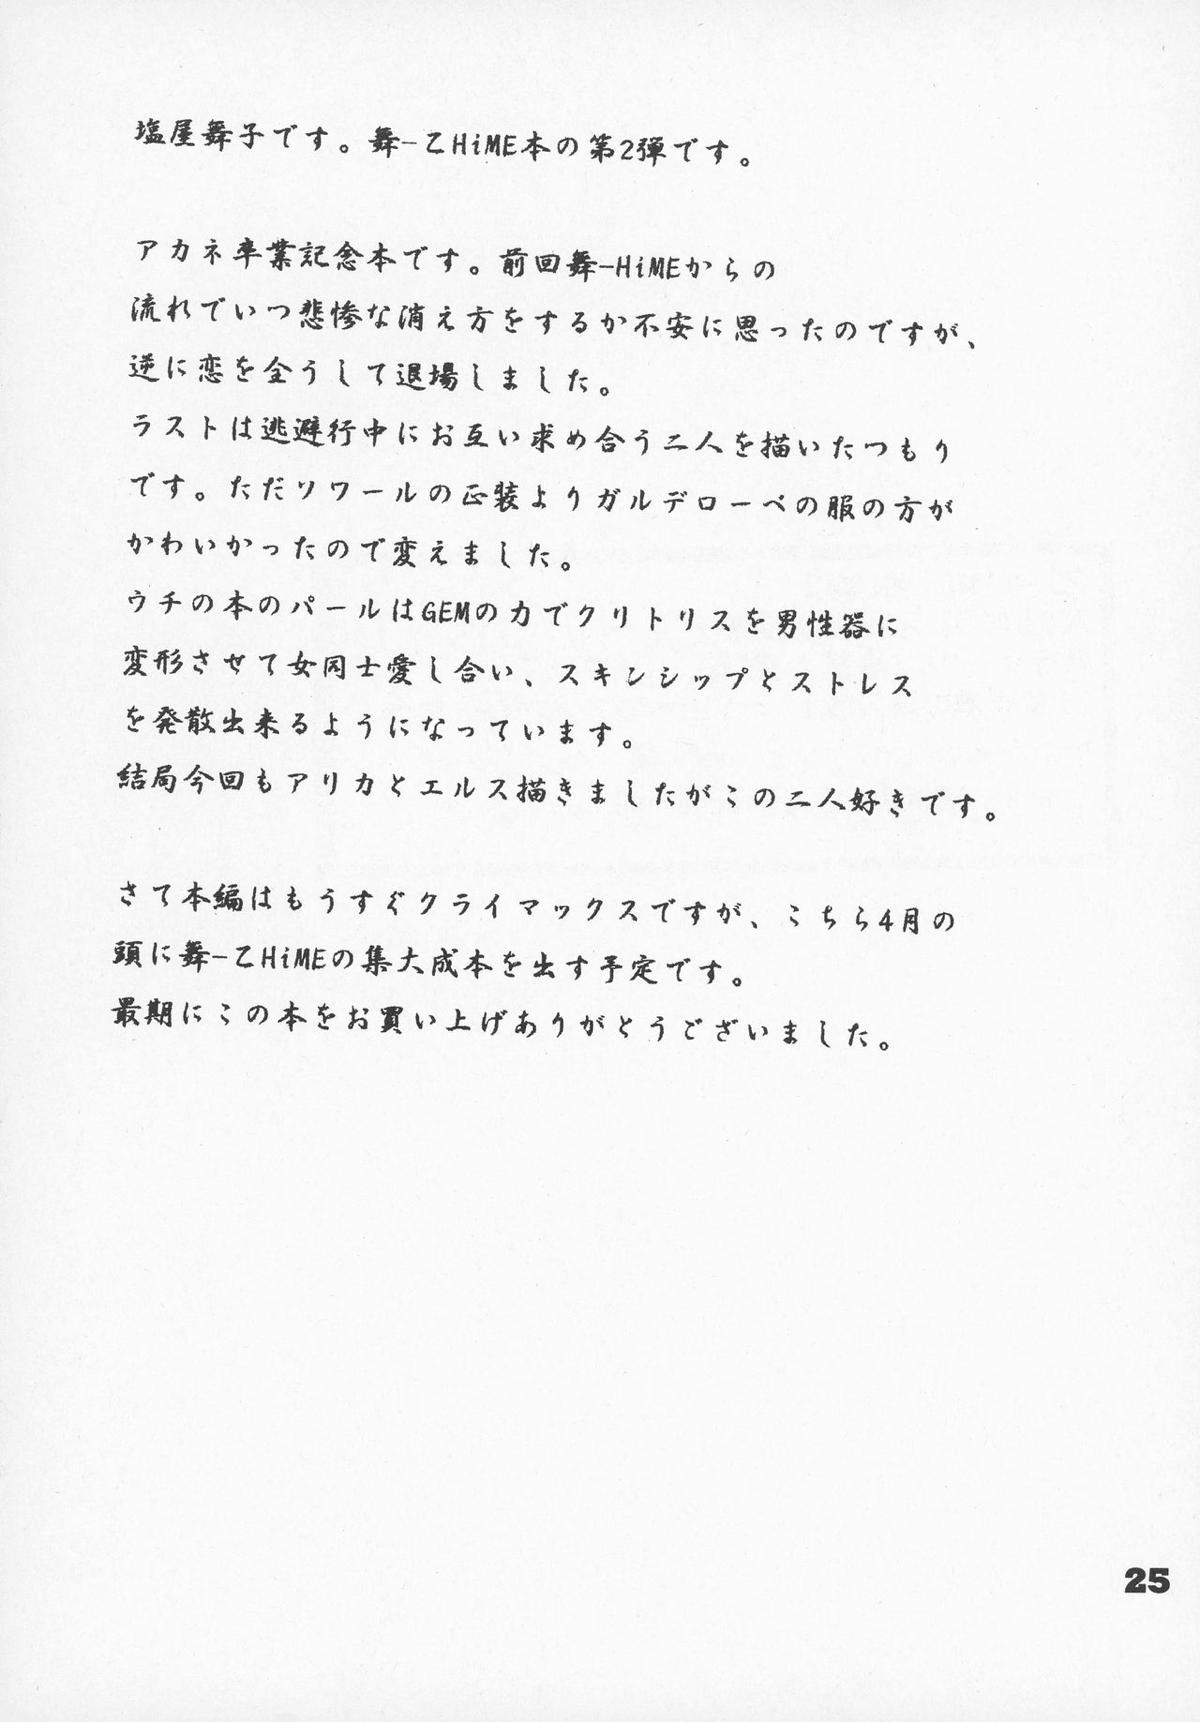 塩屋舞子です。舞-乙HiME本の第2弾です。
アカネ卒業記念本です。前回舞-HiMEからの
流れでいつ悲惨な消え方をするか不安に思ったのですが、
逆に恋を全うして退場しました。
ラストは逃避行中にお互い求め合う二人を描いたつもり
です。ただソワールの正装よりガルデローベの服の方が
かわいかったので変えました。
ウチの本のパールはGEMの力でクリトリスを男性器に
変形させて女同士愛し合い、スキンシップとストレス
を発散出来るようになっています。
結局今回もアリカとエルス描きましたがこの二人好きです。
さて本編はもうすぐクライマックスですが、こちら4月の
頭に舞-乙HiMEの集大成本を出す予定です。
最期にこの本をお買い上げありがとうございました。
25